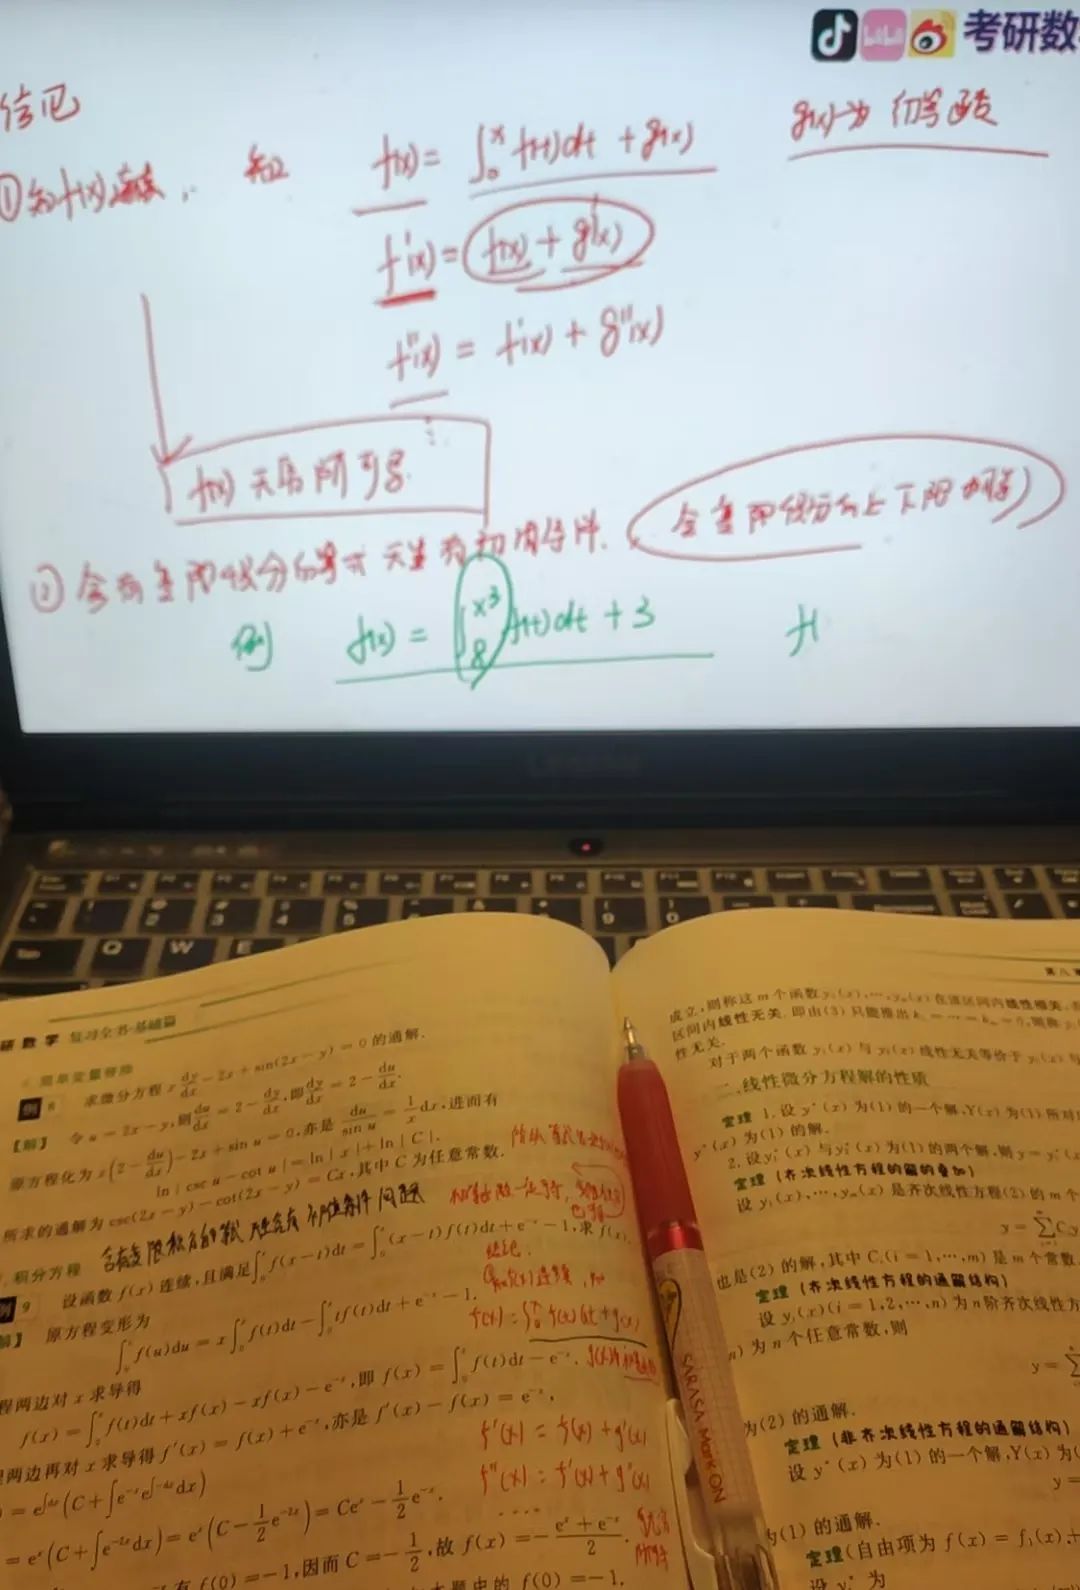 考研数
信息
①知f(x)连续, 知 f(x)= ∫₀ˣ f(t)dt + g(x) g(x)为 初等函数
f'(x)= f(x) + g'(x)
f''(x) = f'(x) + g''(x)
⋮
f(x) 无穷阶可导.
②含有变限积分的等式天生有初值条件. (令变限积分的上下限相等)
例 f(x) = ∫₈^{x³} f(t)dt + 3 f(
Q W E
研数学 复习全书·基础篇
简单变量替换
例 8 求微分方程 x dy/dx − 2x + sin(2x − y) = 0 的通解.
【解】 令 u = 2x − y, 则 du/dx = 2 − dy/dx, 即 dy/dx = 2 − du/dx.
原方程化为 x(2 − du/dx) − 2x + sin u = 0, 亦是 du/sin u = 1/x dx, 进而有
ln | csc u − cot u | = ln | x | + ln | C |.
所求的通解为 csc(2x − y) − cot(2x − y) = Cx, 其中 C 为任意常数.
积分方程 含有变限积分的等式 隐含有 初值条件 问题
例 9 设函数 f(x) 连续, 且满足 ∫₀ˣ f(x − t)dt = ∫₀ˣ (x − t)f(t)dt + e⁻ˣ − 1, 求 f(x).
解】 原方程变形为
∫₀ˣ f(u)du = x∫₀ˣ f(t)dt − ∫₀ˣ tf(t)dt + e⁻ˣ − 1.
程两边对 x 求导得
f(x) = ∫₀ˣ f(t)dt + xf(x) − xf(x) − e⁻ˣ, 即 f(x) = ∫₀ˣ f(t)dt − e⁻ˣ.
两边再对 x 求导得 f'(x) = f(x) + e⁻ˣ, 亦是 f'(x) − f(x) = e⁻ˣ,
) = e^{∫dx}(C + ∫e⁻ˣe^{∫−dx}dx)
= eˣ(C + ∫e⁻²ˣdx) = eˣ(C − 1/2 e⁻²ˣ) = Ceˣ − 1/2 e⁻ˣ.
有 f(0) = −1, 因而 C = −1/2, 故 f(x) = − (eˣ + e⁻ˣ)/2.
题中的 f(0) = −1.
f(x) = ∫₀ˣ f(t)dt + g(x)
f'(x) = f(x) + g'(x)
f''(x) = f'(x) + g''(x)
...
SARASA Mark ON
第八章
成立, 则称这 m 个函数 y₁(x), ⋯, yₘ(x) 在该区间内线性相关.
区间内线性无关. 即由(3) 只能推出 k₁ = ⋯ = kₘ = 0, 则称
性无关.
对于两个函数 y₁(x) 与 y₂(x) 线性无关等价于 y₁(x) 与
二、线性微分方程解的性质
定理 1. 设 y*(x) 为(1) 的一个解, Y(x) 为(1) 所对
y*(x) 为(1) 的解.
2. 设 y₁*(x) 与 y₂*(x) 为(1) 的两个解, 则 y =
定理 (齐次线性方程的解的叠加)
设 y₁(x), ⋯, yₘ(x) 是齐次线性方程(2) 的 m 个
y = ∑Cᵢy
也是(2) 的解, 其中 Cᵢ(i = 1, ⋯, m) 是 m 个常数.
定理 (齐次线性方程的通解结构)
设 yᵢ(x)(i = 1,2, ⋯, n) 为 n 阶齐次线性方
n) 为 n 个任意常数, 则
y = ∑
为(2) 的通解.
定理 (非齐次线性方程的通解结构)
设 y*(x) 为(1) 的一个解, Y(x) 为(
y =
为(1) 的通解.
定理 (自由项为 f(x) = f₁(x) +
设 y* 为